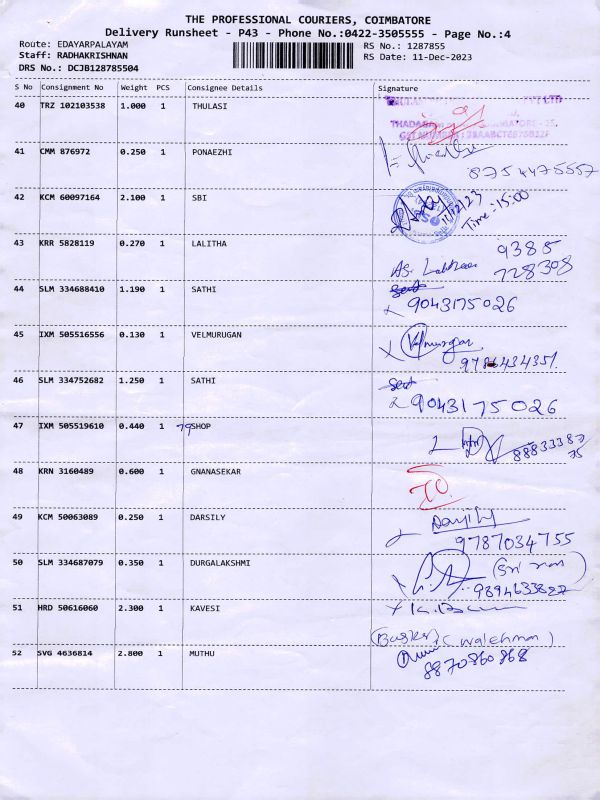 THE PROFESSIONAL COURIERS, COIMBATORE
Delivery Runsheet - P43 - Phone No.:0422-3505555 - Page No.:4
Route: EDAYARPALAYAM RS No.: 1287855
Staff: RADHAKRISHNAN RS Date: 11-Dec-2023
DRS No.: DCJB128785504
S No Consignment No Weight PCS Consignee Details Signature
40 TRZ 102103538 1.000 1 THULASI
41 CMM 876972 0.250 1 PONAEZHI
8754475557
42 KCM 60097164 2.100 1 SBI
11/12/23
Time:-15:00
43 KRR 5828119 0.270 1 LALITHA
9385
728308
44 SLM 334688410 1.190 1 SATHI
9043175026
45 IXM 505516556 0.130 1 VELMURUGAN
Velmurgan
9786434351.
46 SLM 334752682 1.250 1 SATHI
9043175026
47 IXM 505519610 0.440 1 79 SHOP
88833387
75
48 KRN 3160489 0.600 1 GNANASEKAR
49 KCM 50063089 0.250 1 DARSILY
9787034755
50 SLM 334687079 0.350 1 DURGALAKSHMI
9894633827
51 HRD 50616060 2.300 1 KAVESI
52 SVG 4636814 2.800 1 MUTHU
8870860868